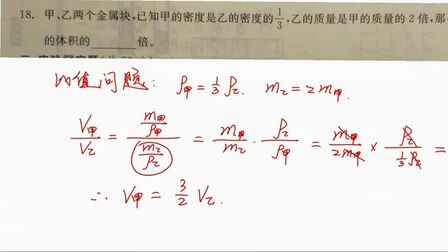 18. 甲、乙两个金属块,已知甲的密度是乙的密度的1/3,乙的质量是甲的质量的 2 倍,那
的体积的______倍。
比值问题: ρ甲=1/3 ρ乙. m乙=2m甲.
V甲/V乙 = (m甲/ρ甲)/(m乙/ρ乙) = m甲/m乙 · ρ乙/ρ甲 = m甲/2m甲 × ρ乙/(1/3 ρ乙) =
∴ V甲 = 3/2 V乙.